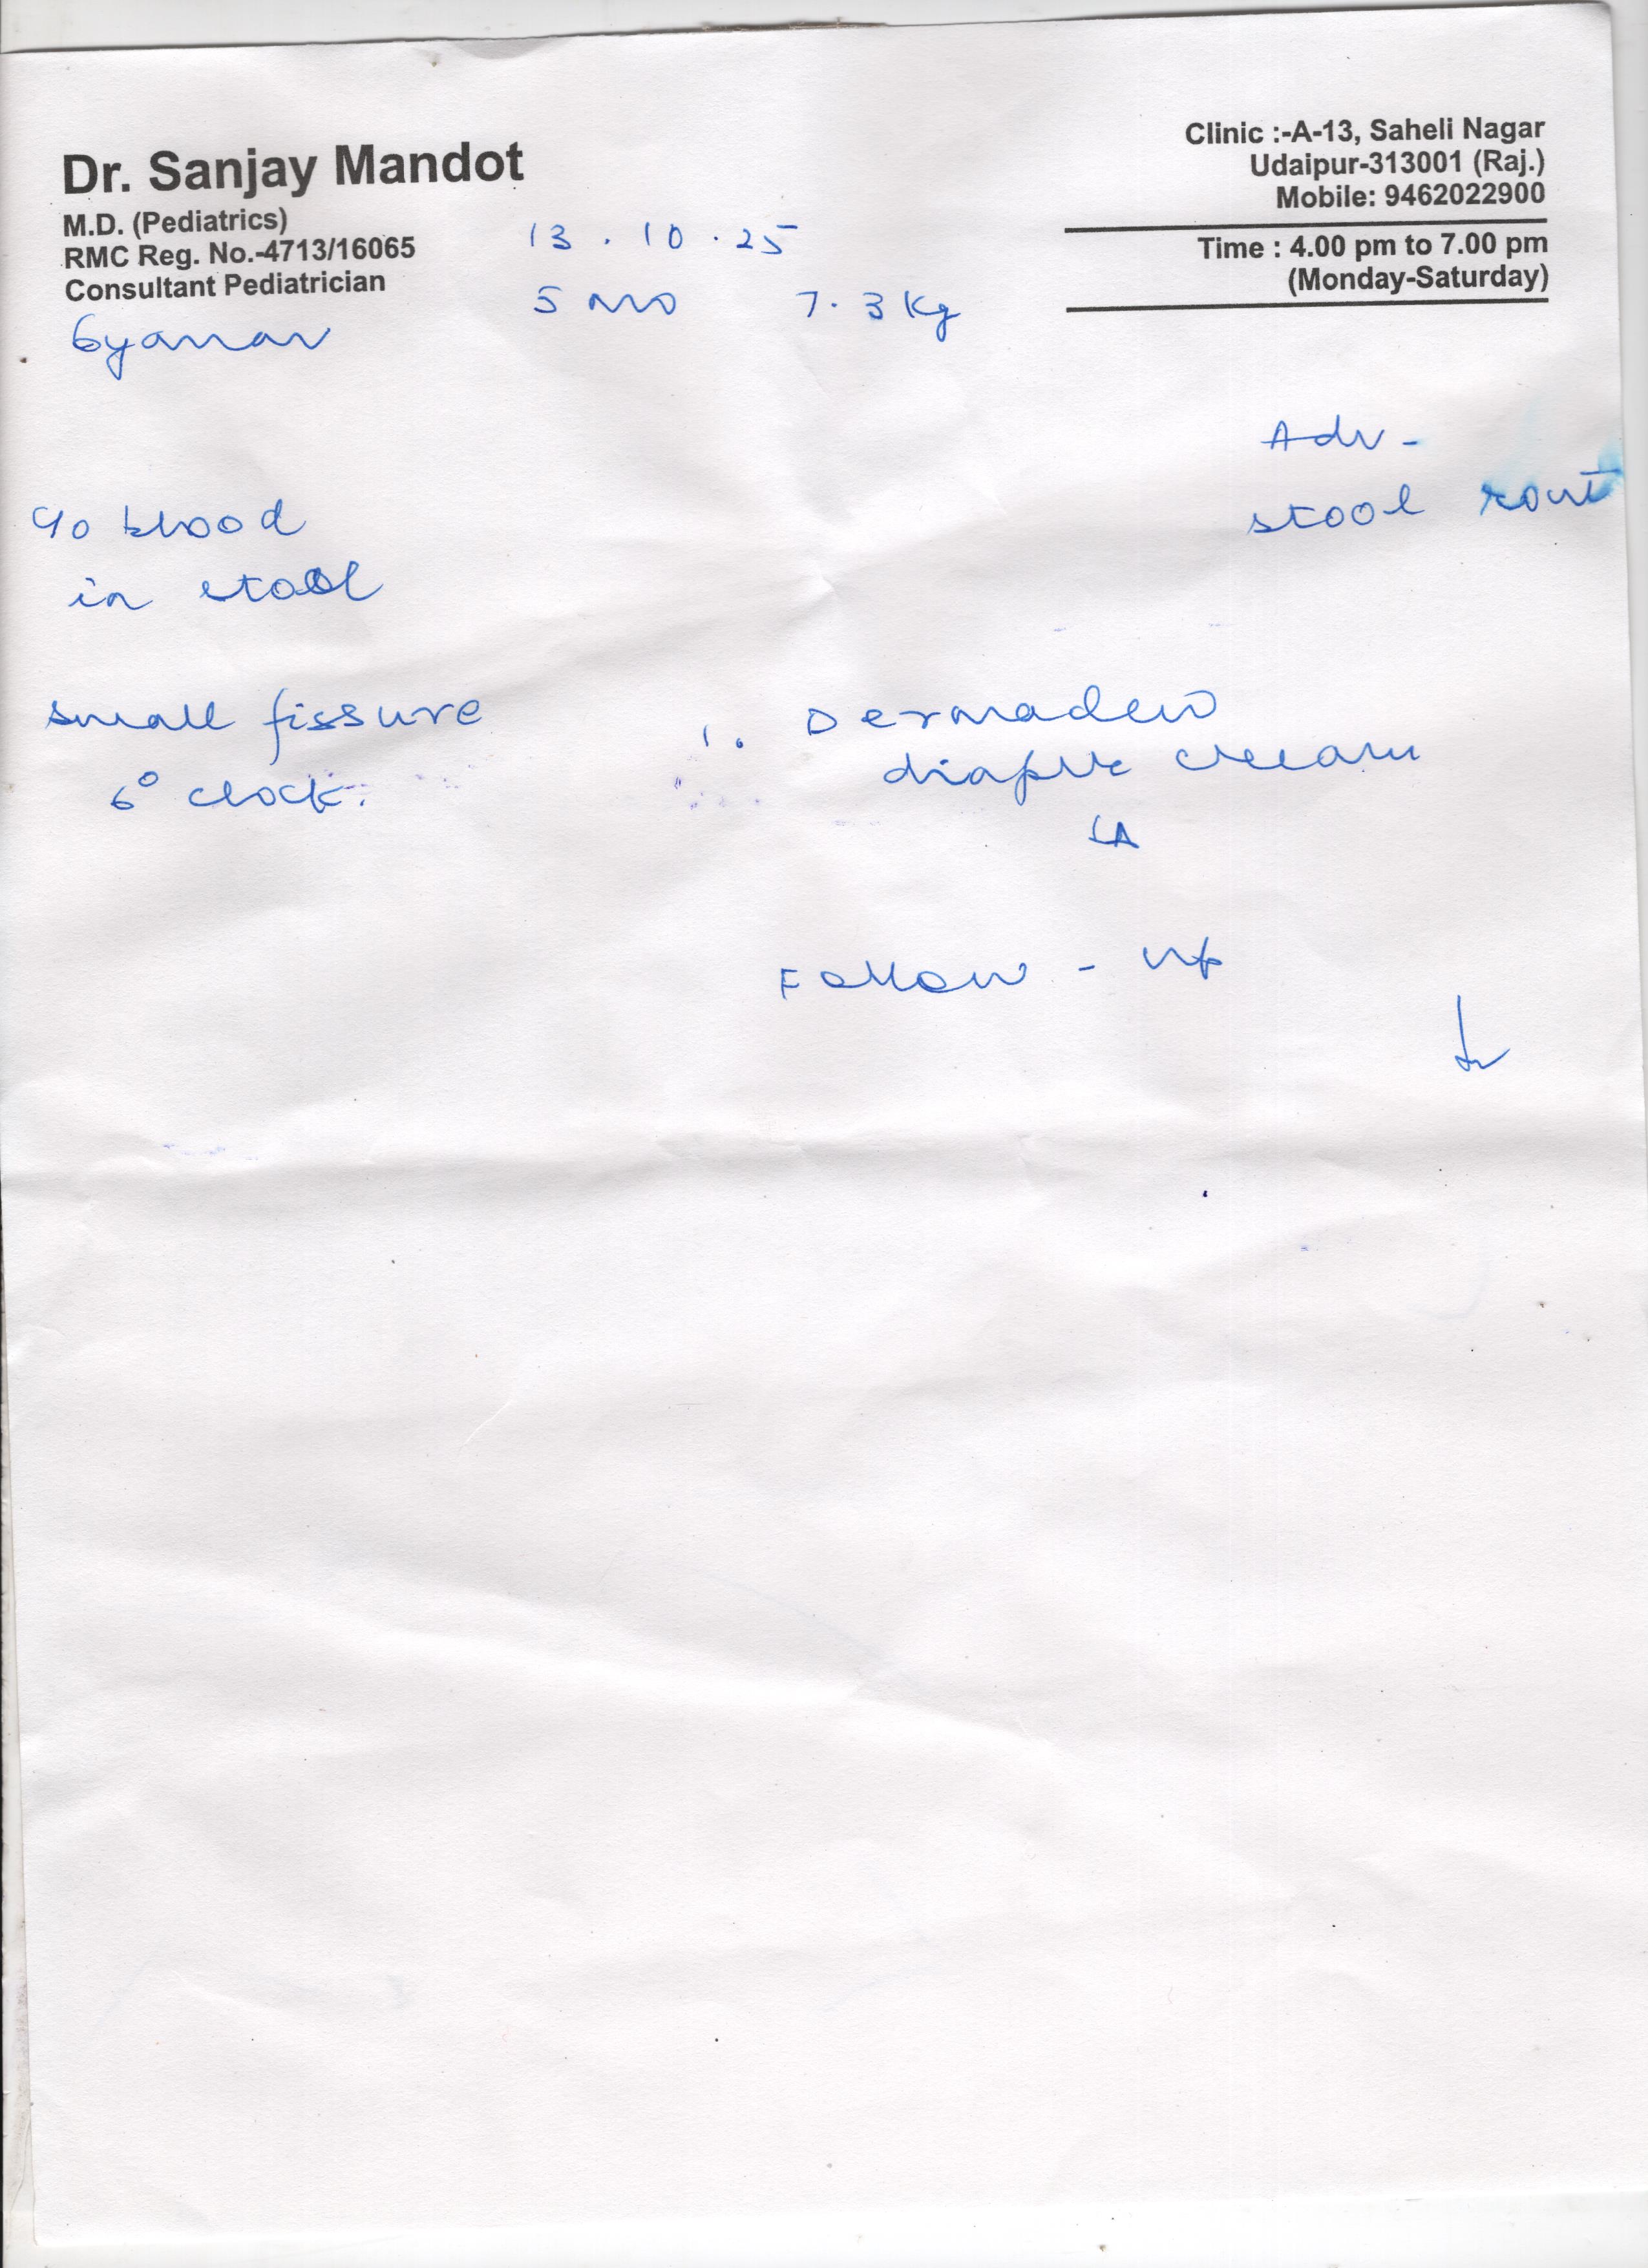 Dr. Sanjay Mandot
M.D. (Pediatrics)
RMC Reg. No.-4713/16065
Consultant Pediatrician
Clinic :-A-13, Saheli Nagar
Udaipur-313001 (Raj.)
Mobile: 9462022900
Time : 4.00 pm to 7.00 pm
(Monday-Saturday)
13 . 10 . 25
5 mo 7.3 Kg
Adv -
stool rout
c/o blood
in stool
small fissure
6° clock.
1. Dermadew
diaper cream
LA
Follow - up